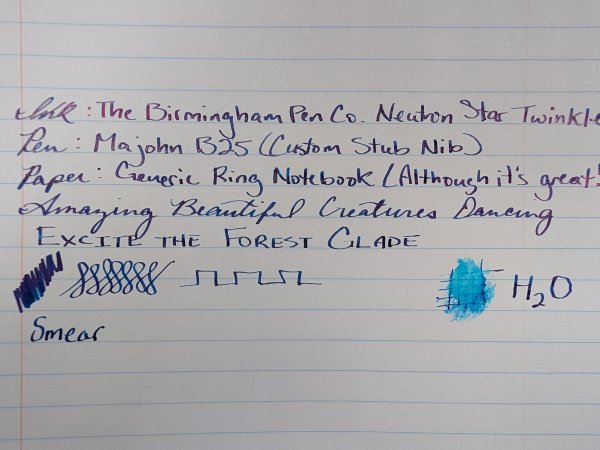 Ink : The Birmingham Pen Co. Neutron Star Twinkle
Pen : Majohn B25 (Custom Stub Nib)
Paper : Generic Ring Notebook (Although it's great!
Amazing Beautiful Creatures Dancing
EXCITE THE FOREST GLADE
H2O
Smear